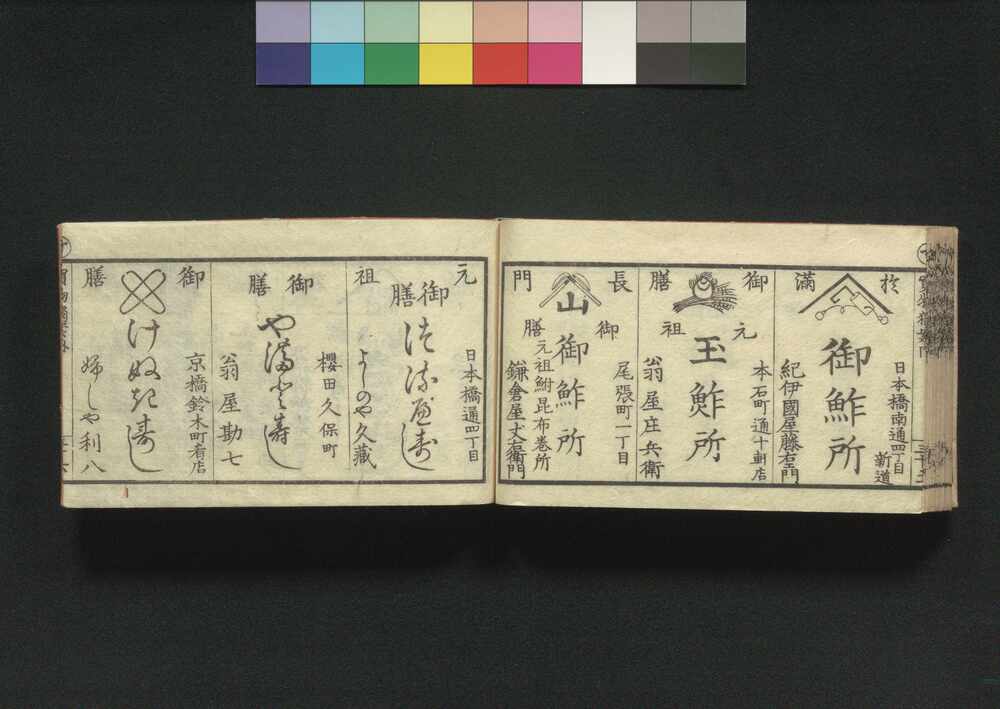 於
滿
日本橋南通四丁目
新道
御鮓所
紀伊國屋藤右衛門
御膳
元祖
本石町通十軒店
玉鮓所
翁屋庄兵衛
長門
山
御膳
尾張町一丁目
御鮓所
元祖鮒昆布巻所
鎌倉屋丈右衛門
元祖
日本橋通四丁目
御膳
よしのや久藏
御膳
櫻田久保町
翁屋勘七
御膳
京橋鈴木町肴店
けぬきすし
婦しや利八